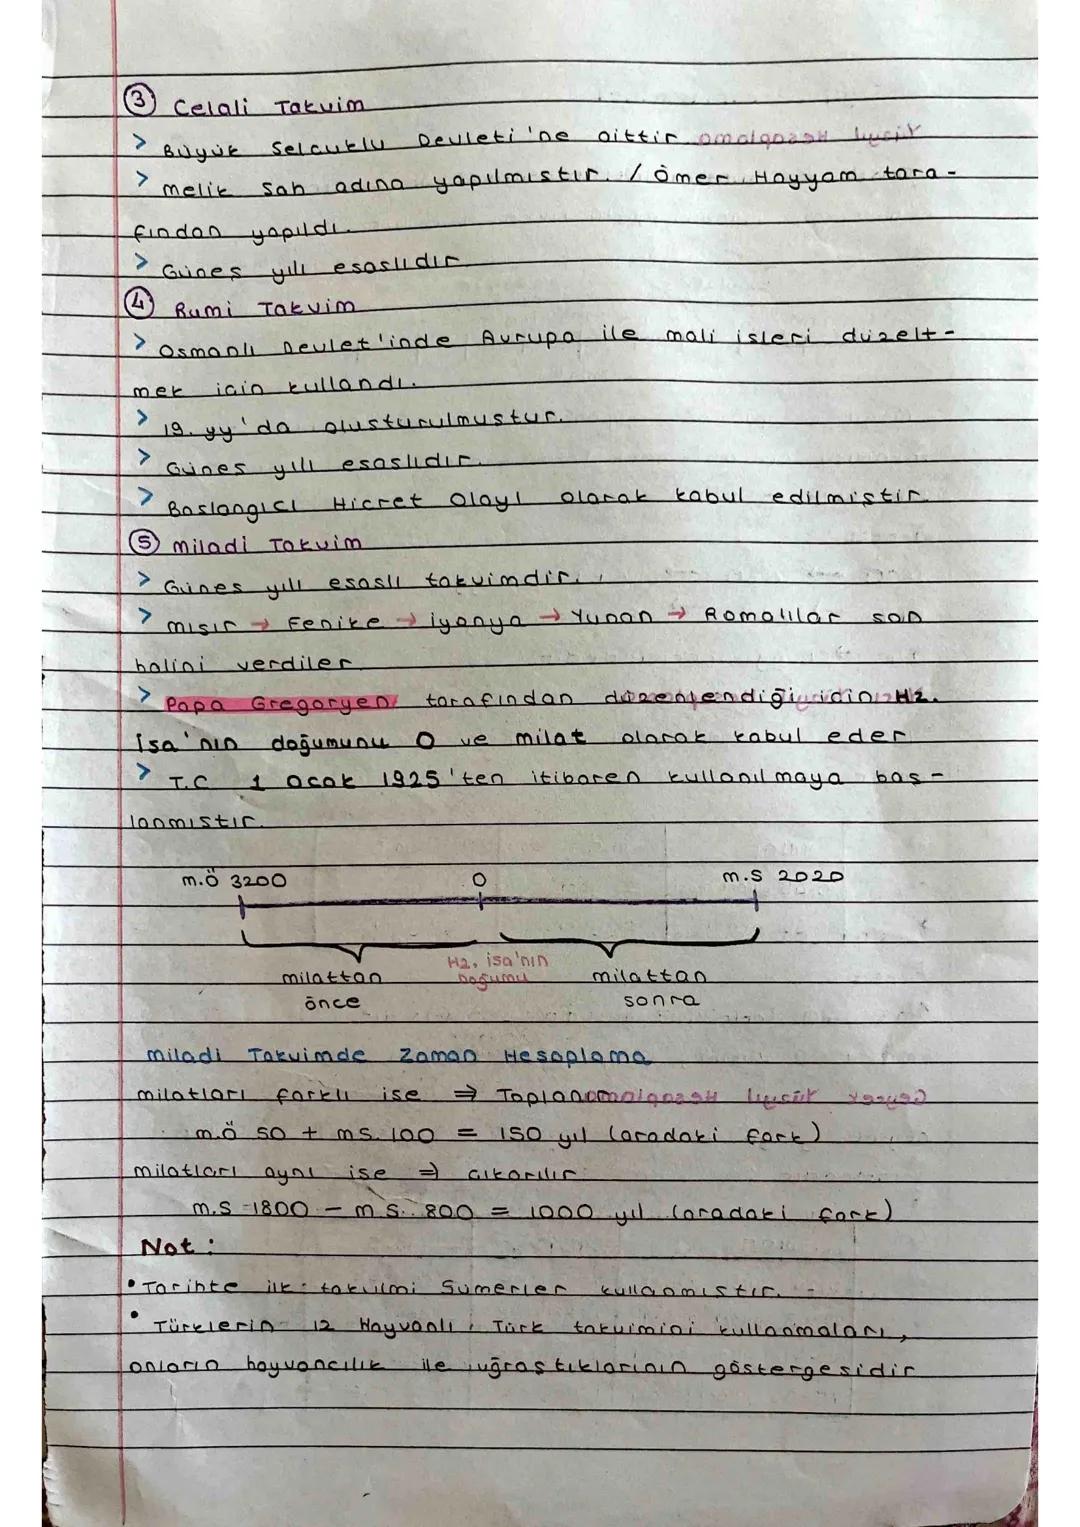 ③ Celali Takvim
> Büyük Selcuklu Devleti'ne aittir
> melik Sah adına yapılmıstır. / Ömer Hayyam tara-
fından yapıldı.
> Günes yılı esaslıdır
④ Rumi Takvim
> Osmanlı Devlet'inde Avrupa ile mali isleri düzelt-
mek icin kullandı.
> 19. yy'da olusturulmustur.
> Günes yılı esaslıdır.
> Baslangıcı Hicret Olayı olarak kabul edilmistir.
⑤ miladi Takvim
> Günes yılı esaslı takvimdir.
> mısır → Fenike → iyonya → Yunan → Romalılar son
halini verdiler.
> Papa Gregoryen tarafından düzenlendiği icin Hz.
İsa'nın doğumunu 0 ve milat olarak kabul eder
> T.C 1 Ocak 1925'ten itibaren kullanılmaya bas-
lanmıstır.
m.Ö 3200 0 m.S 2020
milattan önce Hz. isa'nın Doğumu milattan sonra
miladi Takvimde Zaman Hesaplama
milatları farklı ise ⇒ Toplanır
m.Ö 50 + ms. 100 = 150 yıl (aradaki fark)
milatları aynı ise ⇒ cıkarılır
m.S 1800 - m S. 800 = 1000 yıl (aradaki fark)
Not :
• Tarihte ilk takvimi Sümerler kullanmıstır.
• Türklerin 12 Hayvanlı Türk takvimini kullanmaları,
onların hayvancılık ile uğrastıklarının göstergesidir